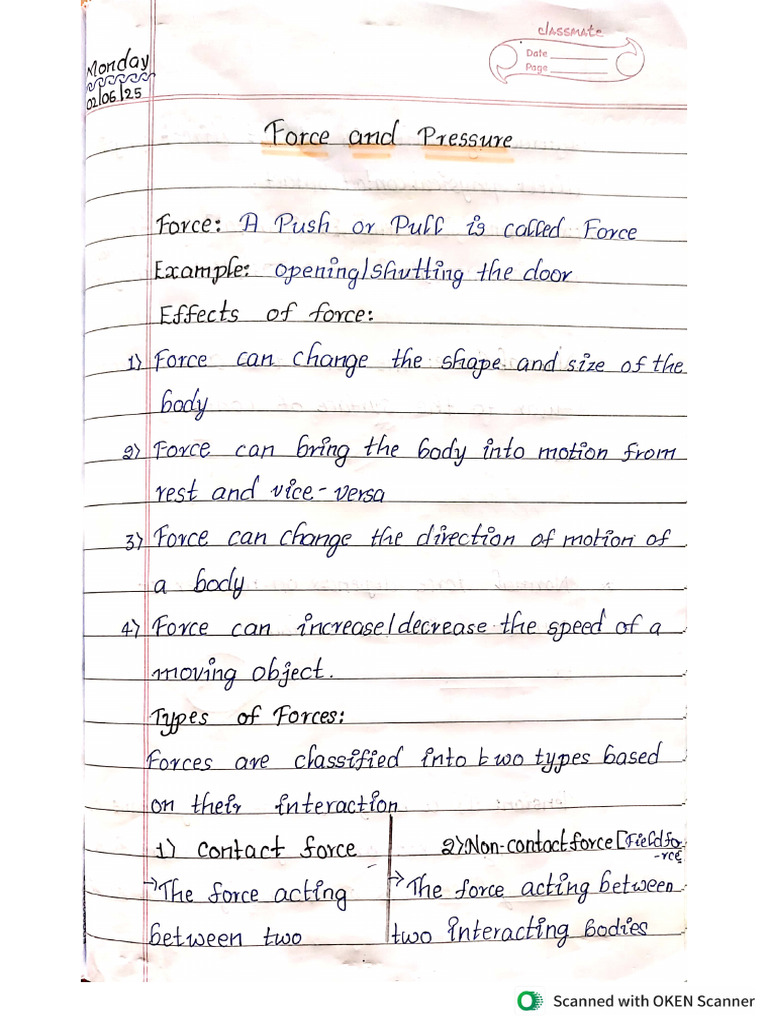 classmate
Date
Page
Monday
02/06/25
Force and Pressure
Force: A Push or Pull is called Force
Example: opening/shutting the door
Effects of force:
1) Force can change the shape and size of the
body
2) Force can bring the body into motion from
rest and vice-versa
3) Force can change the direction of motion of
a body
4) Force can increase/decrease the speed of a
moving object.
Types of Forces:
Forces are classified into two types based
on their interaction
1) Contact force
→The force acting
between two
2) Non-contact force [Field fo
-rce]
→ The force acting between
two interacting bodies
Scanned with OKEN Scanner